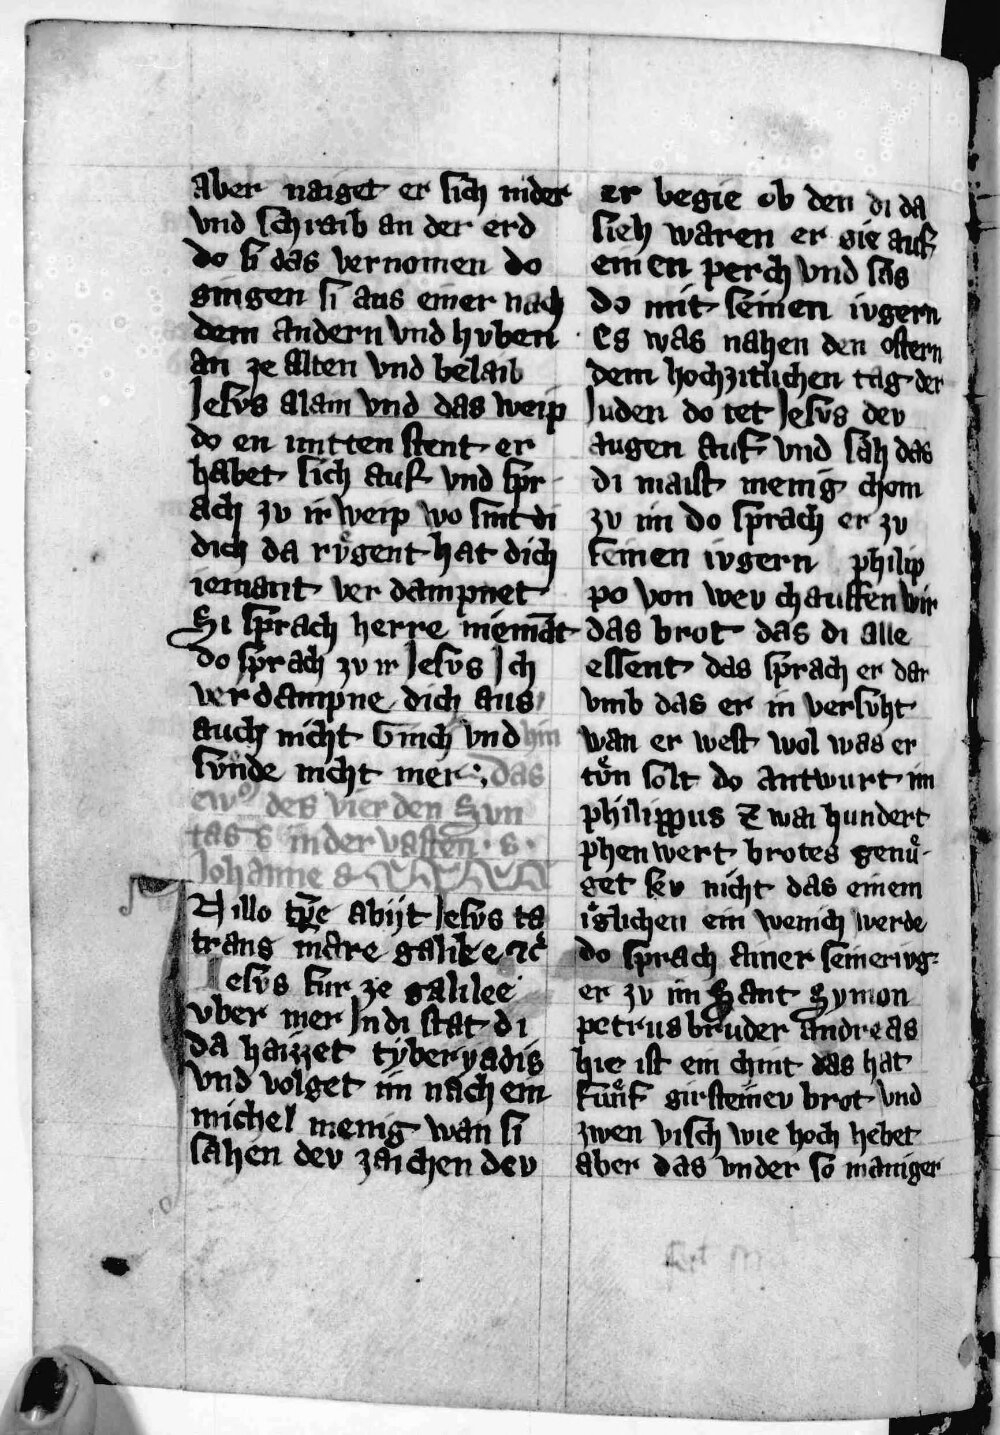 aber naiget er sich nider
vnd schraib an der erd
do s͛ das vernomen do
gingen si aus einer nach
dem andern vnd hvben
an ze alten vnd belaib
Jesvs alain vnd das weip
do en mitten stent er
habet sich auf vnd spr
ach zv ir weip wo sint di
dich da rvͦgent hat dich
iemant ver dampnet
Si sprach herre niemāt
do sprach zv ir Jesvs Ich
verdampne dich aus
auch nicht Ginch vnd hin
svnde nicht mer das
ew̄ des vierden Svn
tas s in der vasten · s ·
Johanne
N illo tp̄e abijt Jesvs ta
trans mare galilee ⁊c̄
Jesvs fur ze galilee
vber mer In di stat di
da haizzet tyberyadis
vnd volget im nach ein
michel menig wan si
sahen dev zaichen dev
er begie ob den di da
sieh waren er gie auf
einen perch vnd sas
do mit seinen ivgern
Es was nahen den ostern
dem hochzitlichen tag der
Juden do tet Jesvs dev
augen auf vnd sah das
di maist menig chom
zv im do sprach er zv
seinen ivgern philip
po von wev chauffen wir
das brot das di alle
essent das sprach er dar
vmb das er in versvht
wan er west wol was er
tvͦn solt do antwurt im
philippus Zwai hundert
phenwert brotes genuͦ
get ev nicht das einem
iglichen ein wenich werde
do sprach ainer seiner ivg
er zv im Sant Symon
petrus bruder andreas
hie ist ein chint das hat
fuͦnf girsteinev brot vnd
zwen visch wie hoch hebet
aber das vnder so maniger